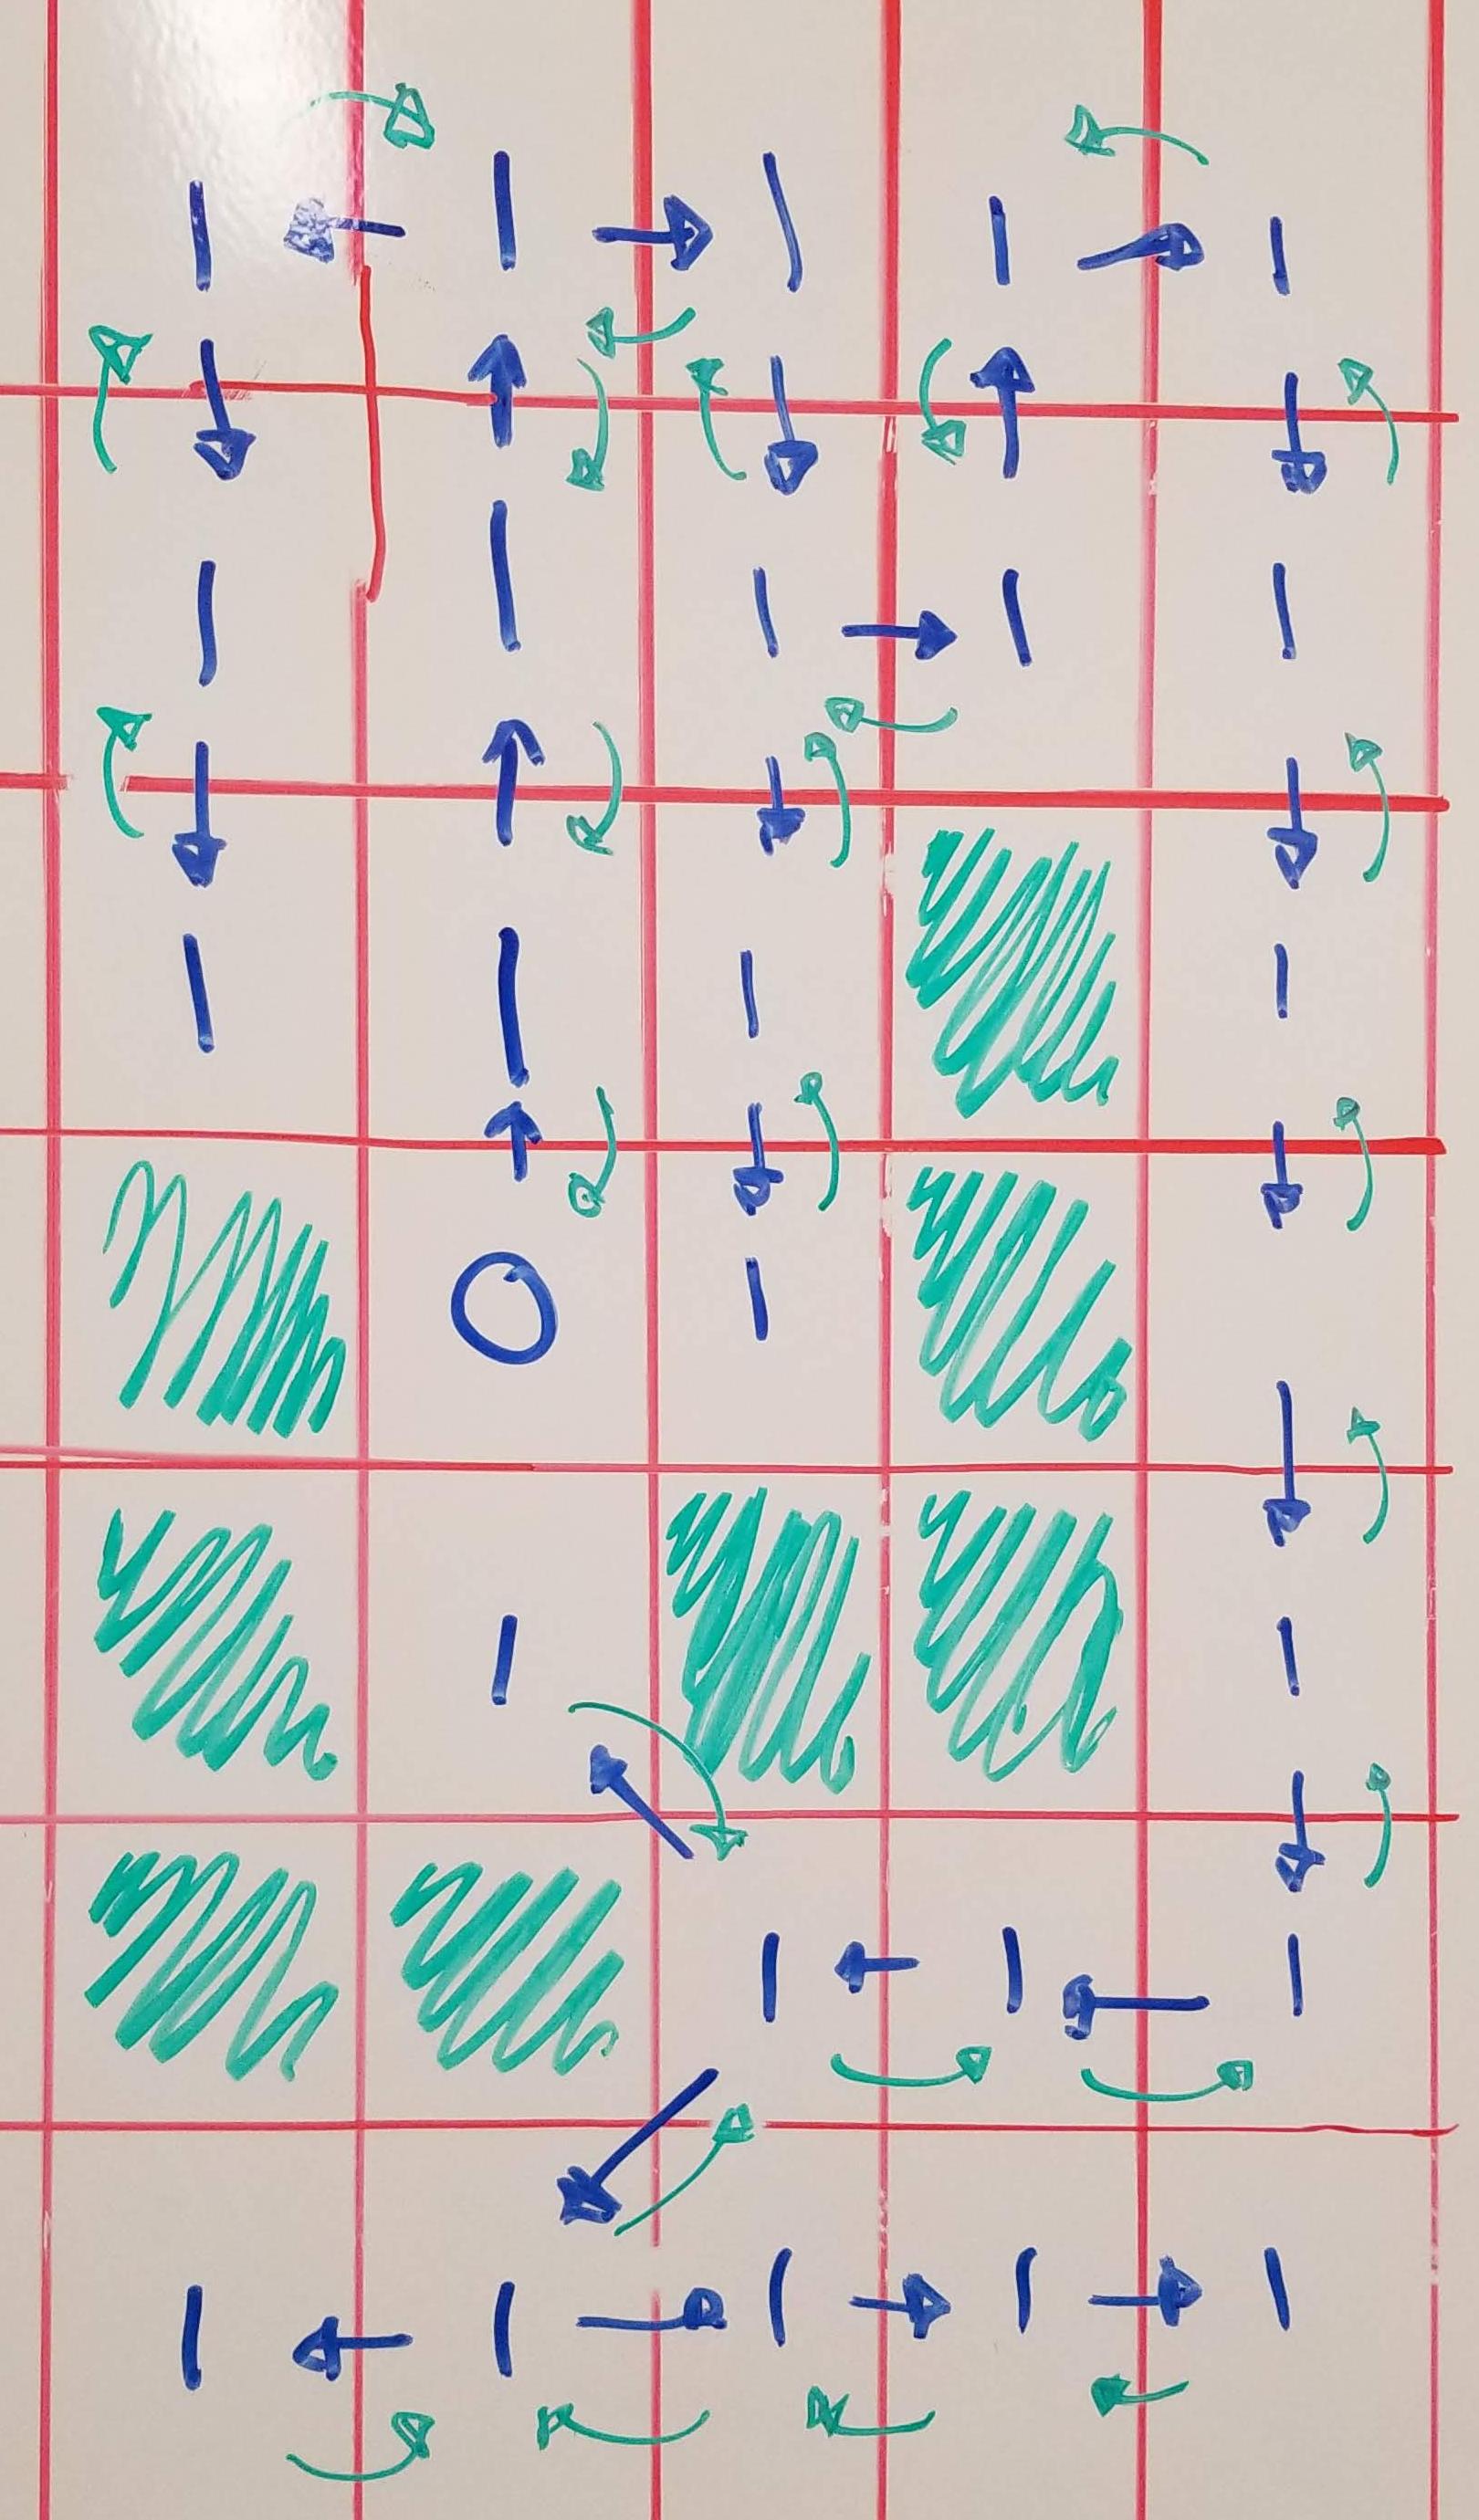 1 1 1 1 1
1 1 1 1 1
1 1 1 1
0 1
1 1
1 1 1
1 1 1 1 1